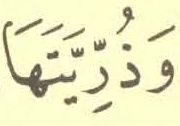 وَذُرِّيَّتَهَا